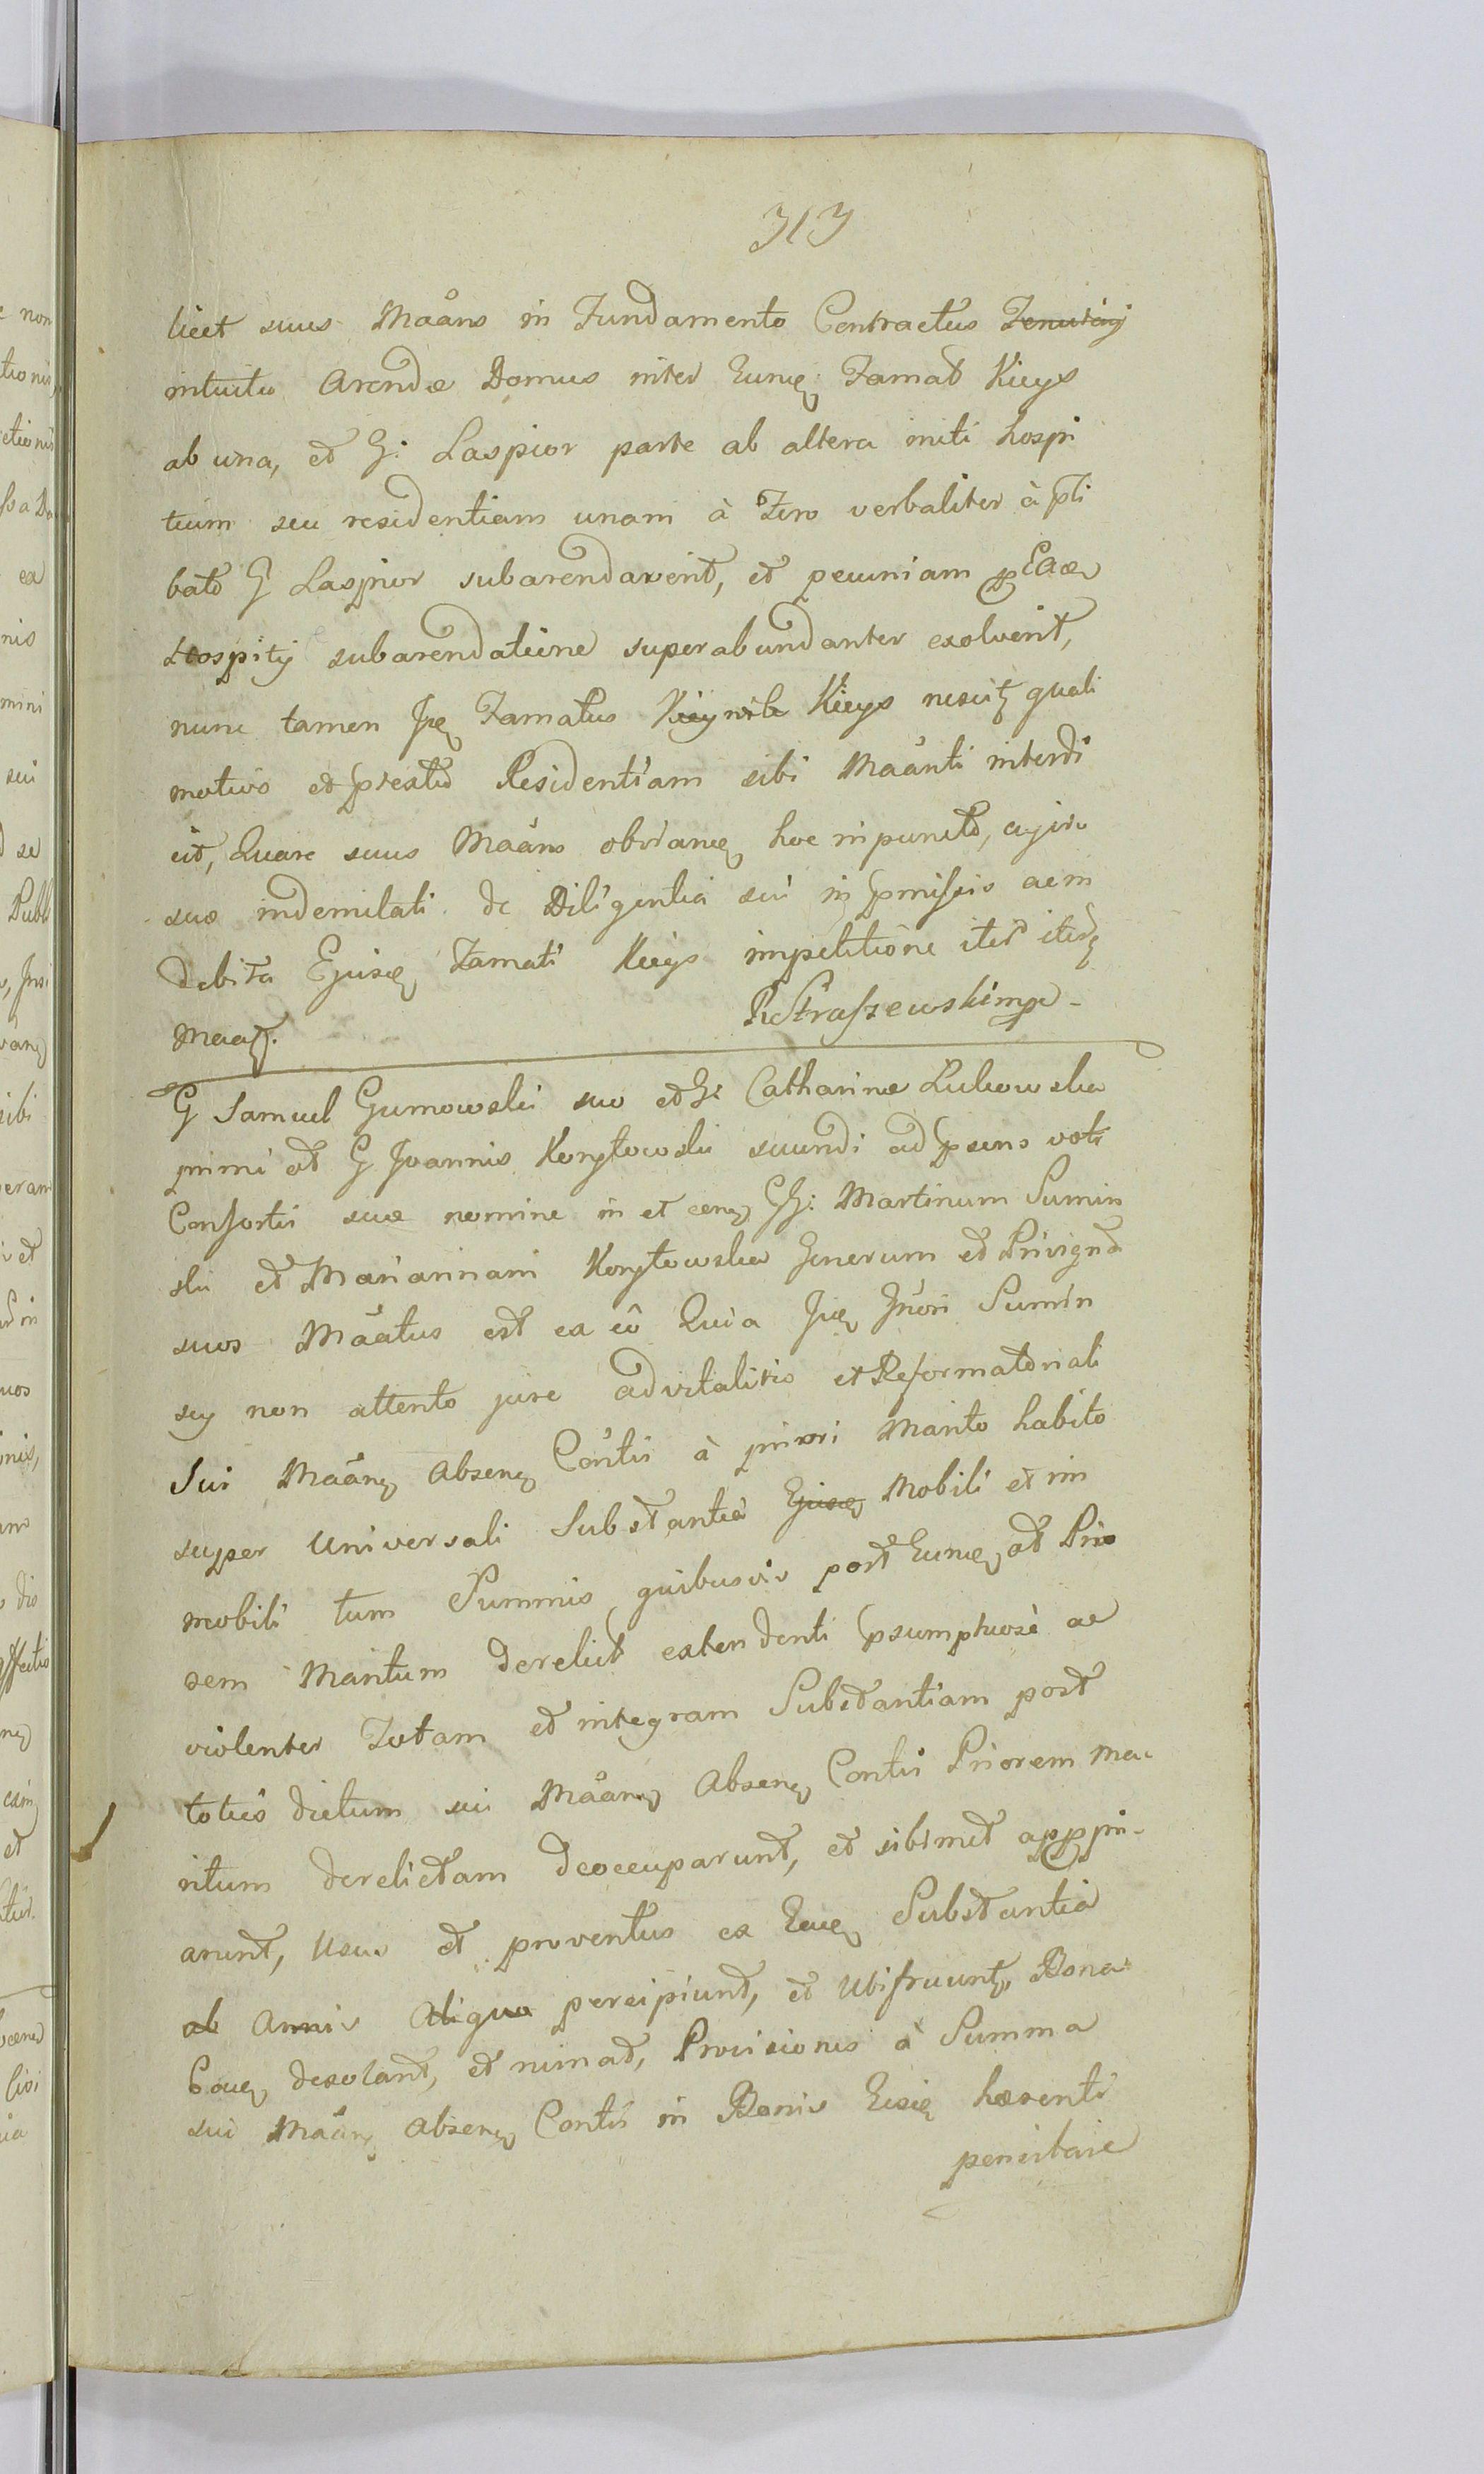 313
licet suus Maans in Fundamento Contractus Tenutarij
intuitu Arendæ Domus inter Eumq Famat Kieys
ab una, et G: Laspior parte ab altera initi hospi
tium seu residentiam unam à Fero verbaliter à pti
bato G Laspior subarendaverit, et pecuniam p Eaa
Hospitij subarendatione superabundanter exolverit,
nunc tamen Ipe Famatus Kieys nescit quali
motivo et prextu Residentiam sibi Maanti interdi
cit, Quare suus Maans obviang hoc in puncto,
suæ indemitati de Diligentia sui in pmissis aem
debita Ejusq Famati Kieys impetitione iter iterq
Maatq.
R Straszewski mp
G Samuel Gumowski suo et G: Catharinæ Lukowska
primi et G Joannis Korytowski secundi ad psens voti
Consortis suæ nomine in et cenq GG: Martinum Sumin
ski et Mariannam Korytowska Generum et Privigna
suos Maatus est ex eo Quia Ipi Inori Sumin
scy non attento jure advitalitio et Reformatoriali
Sui Maanq Absenq Contis à priori Marito habito
super Universali Substantia Ejusq Mobili et im
mobili tum Summis quibusvis post Eumq at Prio
rem Maritum derelict extendenti psumptuosè ac
violenter Totam et integram Substantiam post
toties dictum sui Maanq Absenq Contis Priorem Ma
ritum derelictam deoccuparunt, et sibimet apppri
arunt, Usus et proventus ex Eaq Substantia
ab Annis Aliquo percipiunt, et Utifruuntq, Bona
Eaq desolant, et ruinat, Provisiones à Summa
sui Maanq Absenq Contis in Bonis Eisq hærenti
pensitare